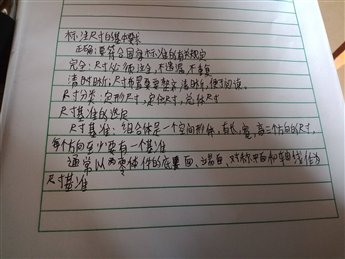 标注尺寸的基本要求
正确:要符合国家标准的有关规定
完全:尺寸必须注全,不遗漏,不重复
清晰:尺寸布置要整齐清晰,便于阅读。
尺寸分类:定形尺寸,定位尺寸,总体尺寸
尺寸基准的选定
尺寸基准:组合体是一个空间形体,有长、宽、高三个方向的尺寸,
每个方向至少要有一个基准
通常以零件的底面、端面、对称平面和轴线作为
尺寸基准